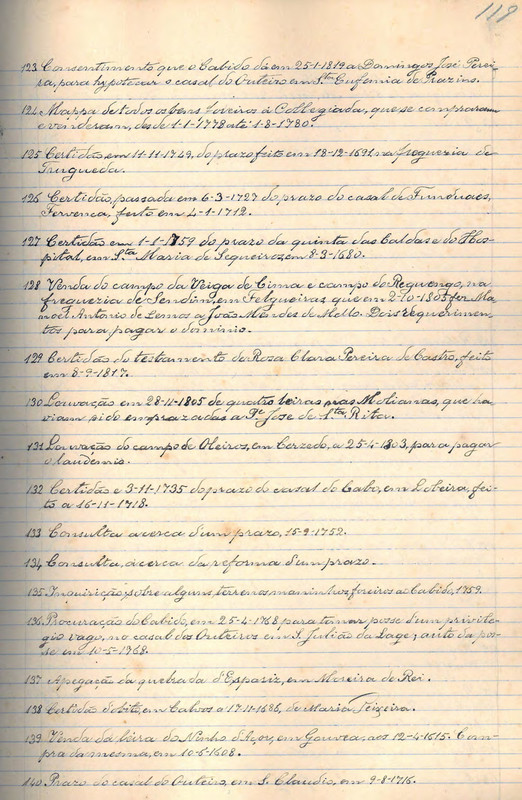 119
123 Consentimento que o Cabido dá em 25-1-1819 a Domingos José Perei-
ra, para hypotecar o casal do Outeiro em Sta Eufemia de Prazins.
124 Mappa de todos os bens foreiros á Collegiada, que se compraram
e venderam, desde 1-1-1778 até 1-8-1780.
125 Certidão em 11-11-1749, do prazo feito em 18-12-1691 na freguezia de
Trugueda.
126 Certidão, passada em 6-3-1727 do prazo do casal de Fundoaes,
Fervença, feito em 4-1-1712.
127 Certidão em 1-1-1759 do prazo da quinta das Caldas e do Hos-
pital, em Sta Maria de Sequeiros, em 8-3-1680.
128 Venda do campo da Veiga de Cima e campo do Reguengo, na
freguezia de Sendim, em Felgueiras que em 2-10-1805 fez Ma-
noel Antonio de Lemos a João Mendes de Mello. Dois requerimen-
tos para pagar o dominio.
129 Certidão do testamento de Rosa Clara Pereira de Castro, feito
em 8-9-1817.
130 Louvação em 28-11-1805 de quatro leiras nas Molianas, que ha-
viam sido emprazadas a Pe José de Sta Rita.
131 Louvação do campo de Oleiros, em Cerzedo, a 25-4-1803, para pagar
o laudémio.
132 Certidão e 3-11-1735 do prazo do casal do Cabo, em Lobeira, fei-
to a 16-11-1718.
133 Consulta acerca d'um prazo, 15-9-1752.
134 Consulta, ácerca da reforma d'um prazo.
135 Inquirição, sobre alguns terrenos maninhos foreiros ao Cabido, 1759.
136 Procuração do Cabido, em 25-4-1768 para tomar posse d'um privile-
gio vago, no casal dos Outeiros em S. Julião da Lage; auto da pos-
se em 10-5-1968.
137 Apegação da quebrada d'Espariz, em Moreira de Rei.
138 Certidão d'obito, em Calvos a 17-11-1686, de Maria Teixeira.
139 Venda da leira do Ninho d'Açor, em Gouvea, aos 12-4-1615. Com-
pra da mesma, em 10-6-1608.
140 Prazo do casal do Outeiro, em S. Claudio, em 9-8-1716.